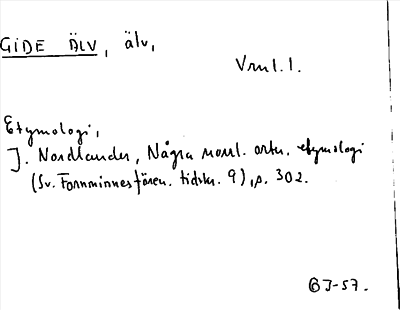 GIDE ÄLV, älv,
Vrml. l.
Etymologi,
J. Nordlander, Några norrl. ortn. etymologi
(Sv. Fornminnesfören. tidskr. 9), s. 302.
GJ-57.